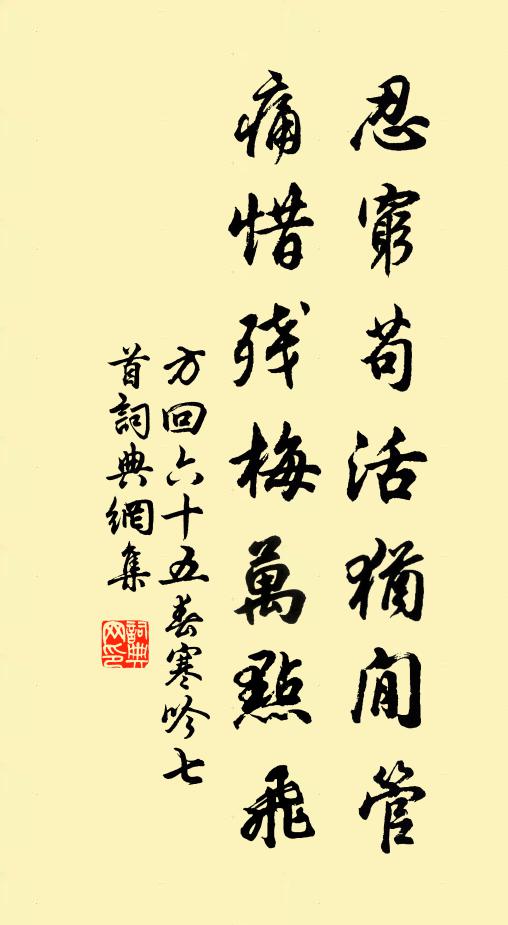 忍窮苟活猶閒管
痛惜殘梅萬點飛
方回六十五春寒吟七
首詞典網集
詞典
网印